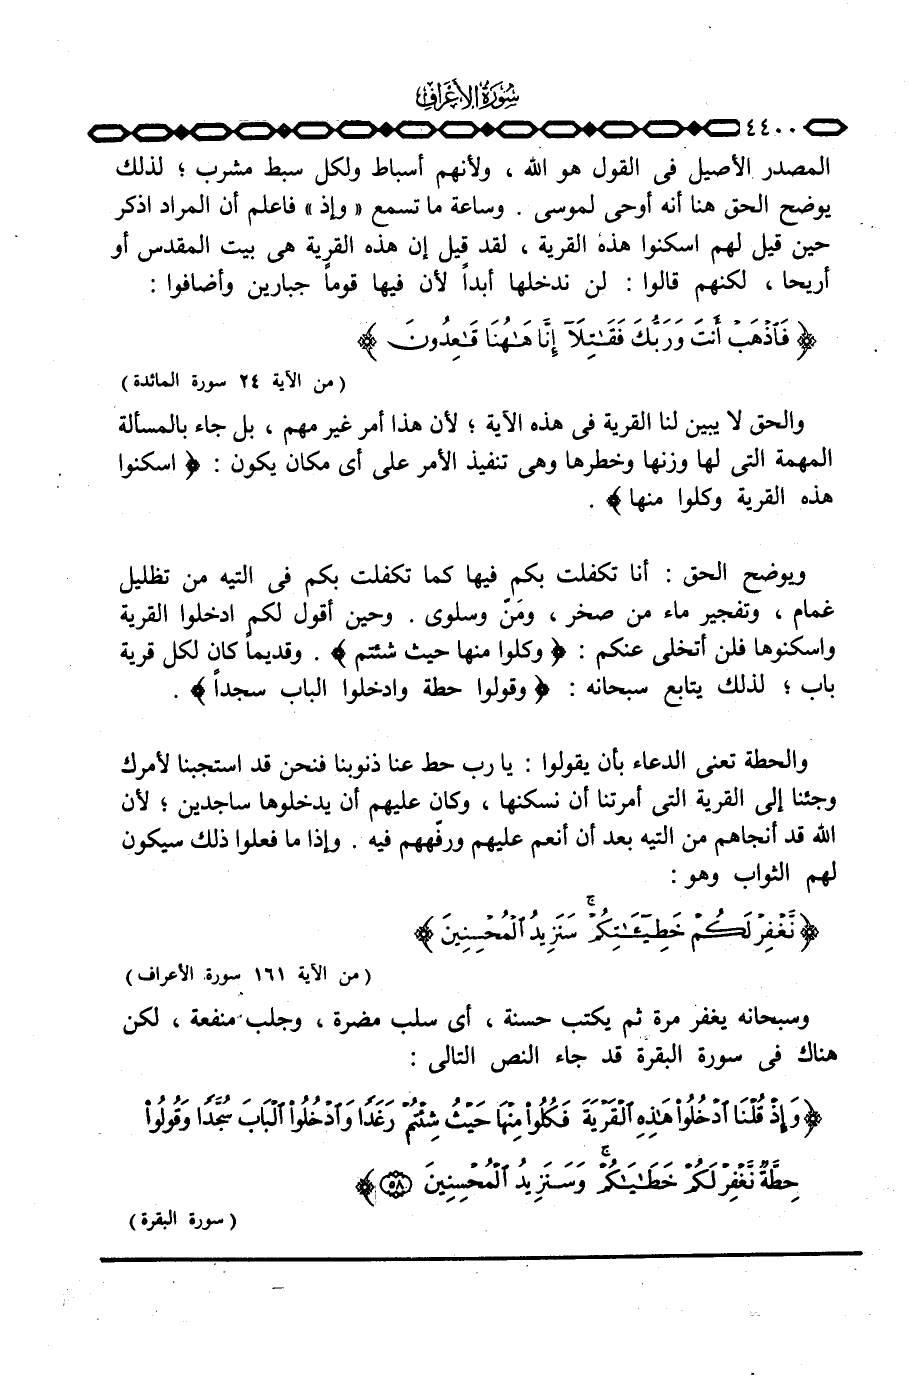 سورة الأعراف
٤٤٠٠
المصدر الأصيل فى القول هو الله ، ولأنهم أسباط ولكل سبط مشرب ؛ لذلك
يوضح الحق هنا أنه أوحى لموسى . وساعة ما تسمع « وإذ » فاعلم أن المراد اذكر
حين قيل لهم اسكنوا هذه القرية ، لقد قيل إن هذه القرية هى بيت المقدس أو
أريحا ، لكنهم قالوا : لن ندخلها أبداً لأن فيها قوماً جبارين وأضافوا :
﴿ فَٱذْهَبْ أَنتَ وَرَبُّكَ فَقَٰتِلَآ إِنَّا هَٰهُنَا قَٰعِدُونَ ﴾
( من الآية ٢٤ سورة المائدة )
والحق لا يبين لنا القرية فى هذه الآية ؛ لأن هذا أمر غير مهم ، بل جاء بالمسألة
المهمة التى لها وزنها وخطرها وهى تنفيذ الأمر على أى مكان يكون : ﴿ اسكنوا
هذه القرية وكلوا منها ﴾ .
ويوضح الحق : أنا تكفلت بكم فيها كما تكفلت بكم فى التيه من تظليل
غمام ، وتفجير ماء من صخر ، ومَنّ وسلوى . وحين أقول لكم ادخلوا القرية
واسكنوها فلن أتخلى عنكم : ﴿ وكلوا منها حيث شئتم ﴾ . وقديماً كان لكل قرية
باب ؛ لذلك يتابع سبحانه : ﴿ وقولوا حطة وادخلوا الباب سجداً ﴾ .
والحطة تعنى الدعاء بأن يقولوا : يا رب حط عنا ذنوبنا فنحن قد استجبنا لأمرك
وجئنا إلى القرية التى أمرتنا أن نسكنها ، وكان عليهم أن يدخلوها ساجدين ؛ لأن
الله قد أنجاهم من التيه بعد أن أنعم عليهم ورفّههم فيه . وإذا ما فعلوا ذلك سيكون
لهم الثواب وهو :
﴿ نَّغْفِرْ لَكُمْ خَطِيٓـَٰٔتِكُمْ ۚ سَنَزِيدُ ٱلْمُحْسِنِينَ ﴾
( من الآية ١٦١ سورة الأعراف )
وسبحانه يغفر مرة ثم يكتب حسنة ، أى سلب مضرة ، وجلب منفعة ، لكن
هناك فى سورة البقرة قد جاء النص التالى :
﴿ وَإِذْ قُلْنَا ٱدْخُلُوا۟ هَٰذِهِ ٱلْقَرْيَةَ فَكُلُوا۟ مِنْهَا حَيْثُ شِئْتُمْ رَغَدًا وَٱدْخُلُوا۟ ٱلْبَابَ سُجَّدًا وَقُولُوا۟
حِطَّةٌ نَّغْفِرْ لَكُمْ خَطَٰيَٰكُمْ ۚ وَسَنَزِيدُ ٱلْمُحْسِنِينَ ٥٨ ﴾
( سورة البقرة )